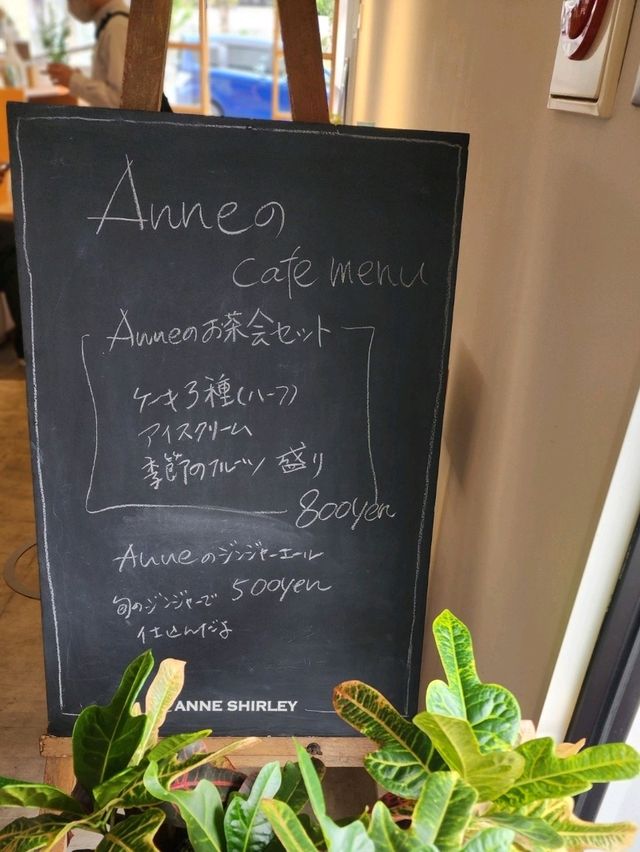 Anneの
cafe menu
Anneのお茶会セット
ケーキ3種(ハーフ)
アイスクリーム
季節のフルーツ盛り
800yen
Anneのジンジャーエール
500yen
旬のジンジャーで
仕込んだよ
ANNE SHIRLEY